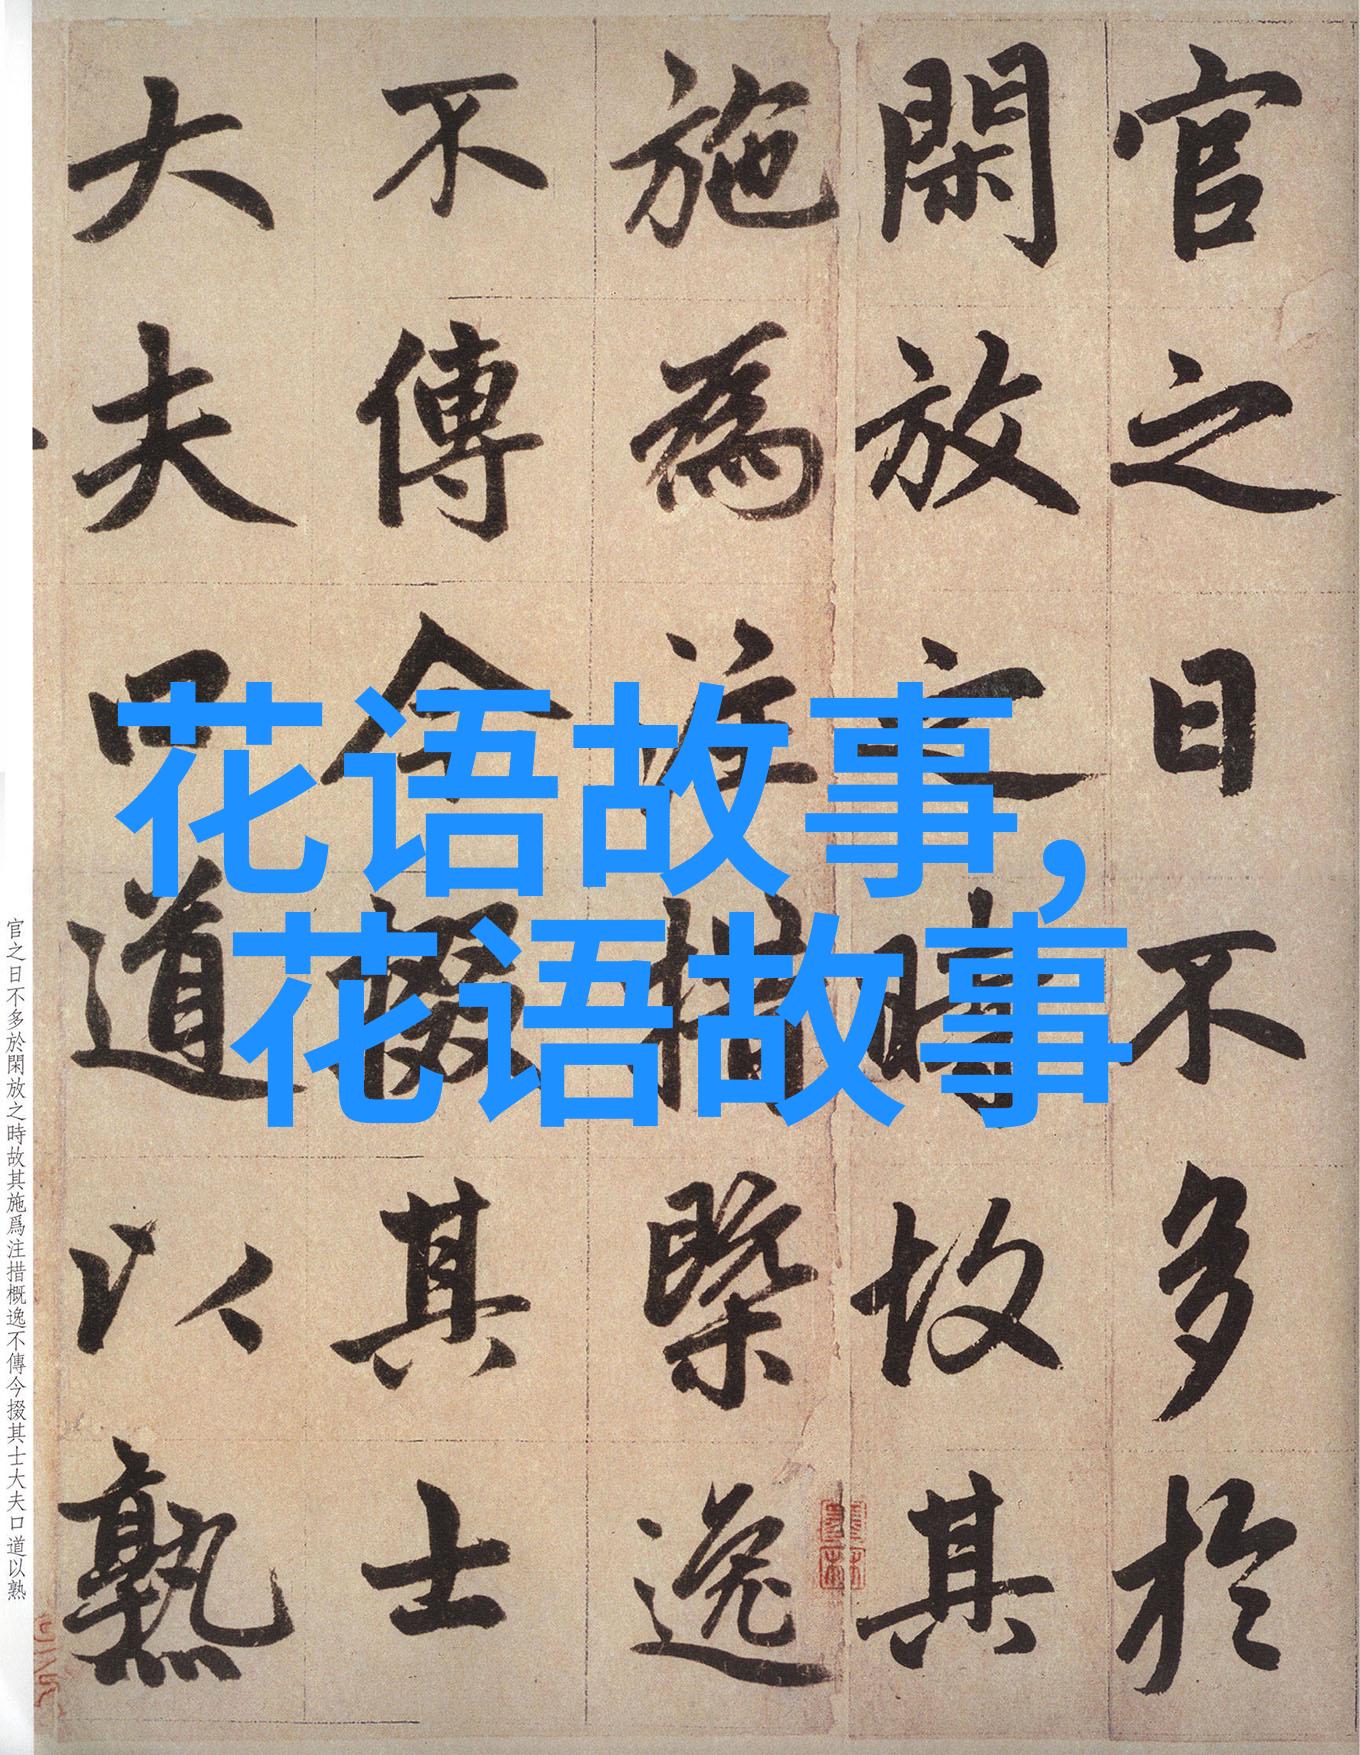 官之日不多於
閑放之時故其
施為注措槩逸
不傳今掇其士
大夫口道以熟
花语故事,
花语故事
官之日不多於閑放之時故其施爲注措概逸不傳今掇其士大夫口道以熟